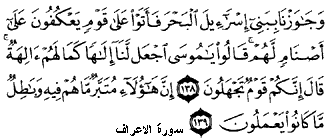 وَجَٰوَزْنَا بِبَنِىٓ إِسْرَٰٓءِيلَ ٱلْبَحْرَ فَأَتَوْا۟ عَلَىٰ قَوْمٍ يَعْكُفُونَ عَلَىٰٓ
أَصْنَامٍ لَّهُمْ ۚ قَالُوا۟ يَٰمُوسَى ٱجْعَل لَّنَآ إِلَٰهًا كَمَا لَهُمْ ءَالِهَةٌ ۚ
قَالَ إِنَّكُمْ قَوْمٌ تَجْهَلُونَ ﴿١٣٨﴾ إِنَّ هَٰٓؤُلَآءِ مُتَبَّرٌ مَّا هُمْ فِيهِ وَبَٰطِلٌ
مَّا كَانُوا۟ يَعْمَلُونَ ﴿١٣٩﴾
سورة الاعراف